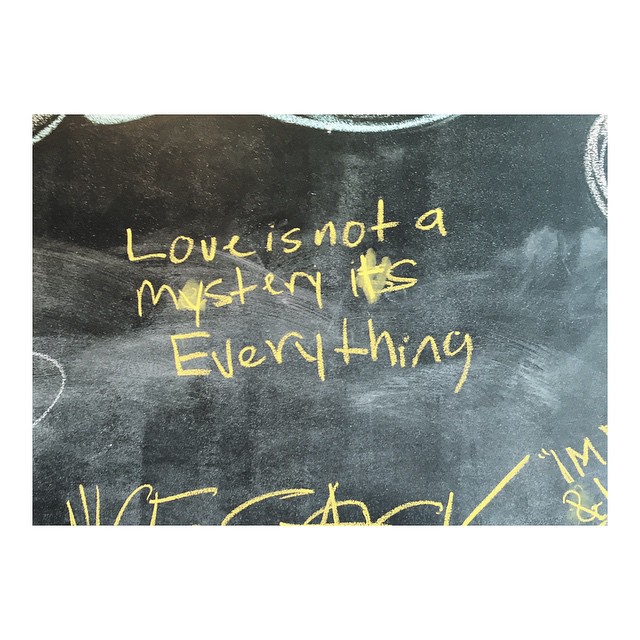 Love is not a
mystery its
Everything
"IM